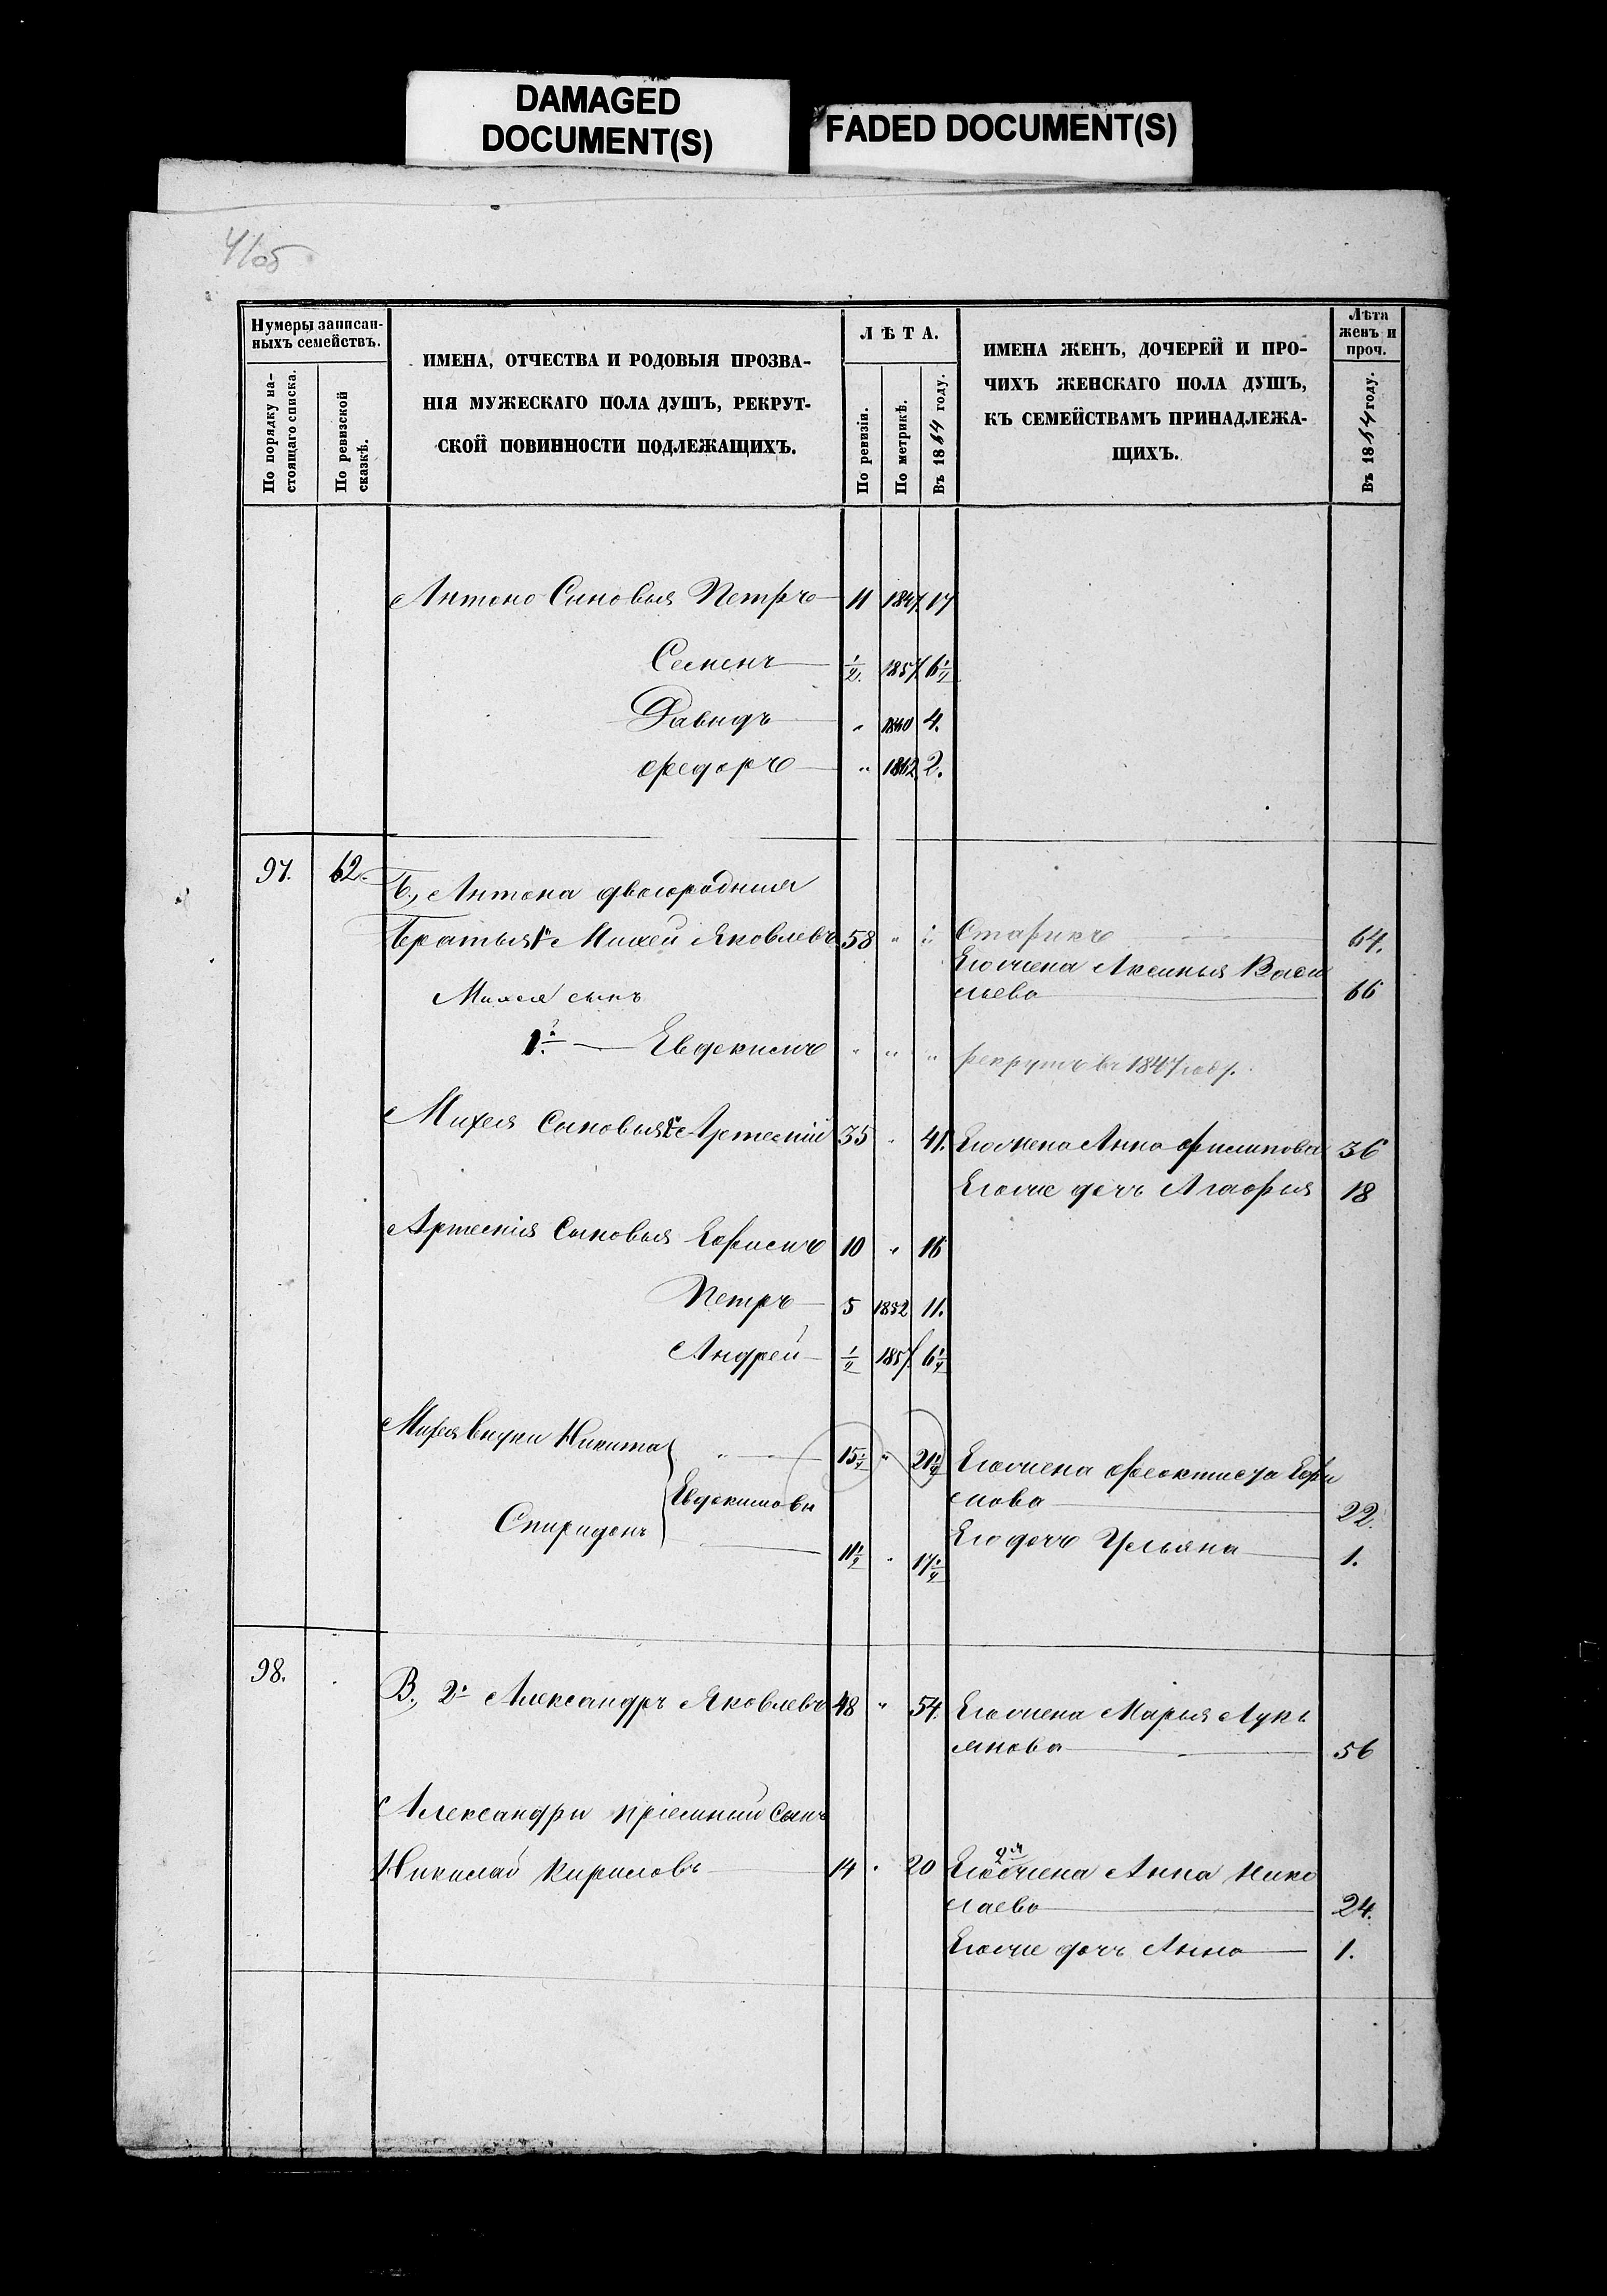 DAMAGED
DOCUMENT(S)
FADED DOCUMENT(S)
4/об
Нумеры записан-
ныхъ семействъ.
По порядку на-
стоящаго списка.
По ревизской
сказкѣ.
ИМЕНА, ОТЧЕСТВА И РОДОВЫЯ ПРОЗВА-
НІЯ МУЖЕСКАГО ПОЛА ДУШЪ, РЕКРУТ-
СКОЙ ПОВИННОСТИ ПОДЛЕЖАЩИХЪ.
ЛѢТА.
По ревизіи.
По метрикѣ.
Въ 1864 году.
ИМЕНА ЖЕНЪ, ДОЧЕРЕЙ И ПРО-
ЧИХЪ ЖЕНСКАГО ПОЛА ДУШЪ,
КЪ СЕМЕЙСТВАМЪ ПРИНАДЛЕЖА-
ЩИХЪ.
Лѣта
женъ и
проч.
Въ 1864 году.
Антона Сыновья Петръ 11 1847. 17
Семенъ 1/2. 1857. 6 1/2
Давидъ " 1860 4.
Федоръ " 1862 2.
97. 62. Б., Антона двоюродныя
Братья 1й Михей Яковлевъ 58 " " Старикъ 64.
Его жена Аксинья Васи
льева 66
Михея сынъ
1й Евдокимъ " " " рекрутъ въ 1847 году.
Михея Сыновья 2й Артемій 35 " 41. Его жена Анна Филипова 36
Его же дочь Агафья 18
Артемія Сыновья Ефимъ 10 " 16
Петръ 5 1852 11.
Андрей 1/2 1857. 6 1/2
Михея внуки Никита 15 1/2 " 21 1/2 Его жена Феоктиста Ефи
мова 22.
Евдокимовы
Спиридонъ 11 1/2 " 17 1/2
Его дочь Ульяна 1.
98. В., 2й Александръ Яковлевъ 48 " 54. Его жена Марья Лукь
янова 56
Александры пріемный Сынъ
Николай Кириловъ 14 " 20 Его 2я жена Анна Нико
лаева 24.
Его же дочь Анна 1.